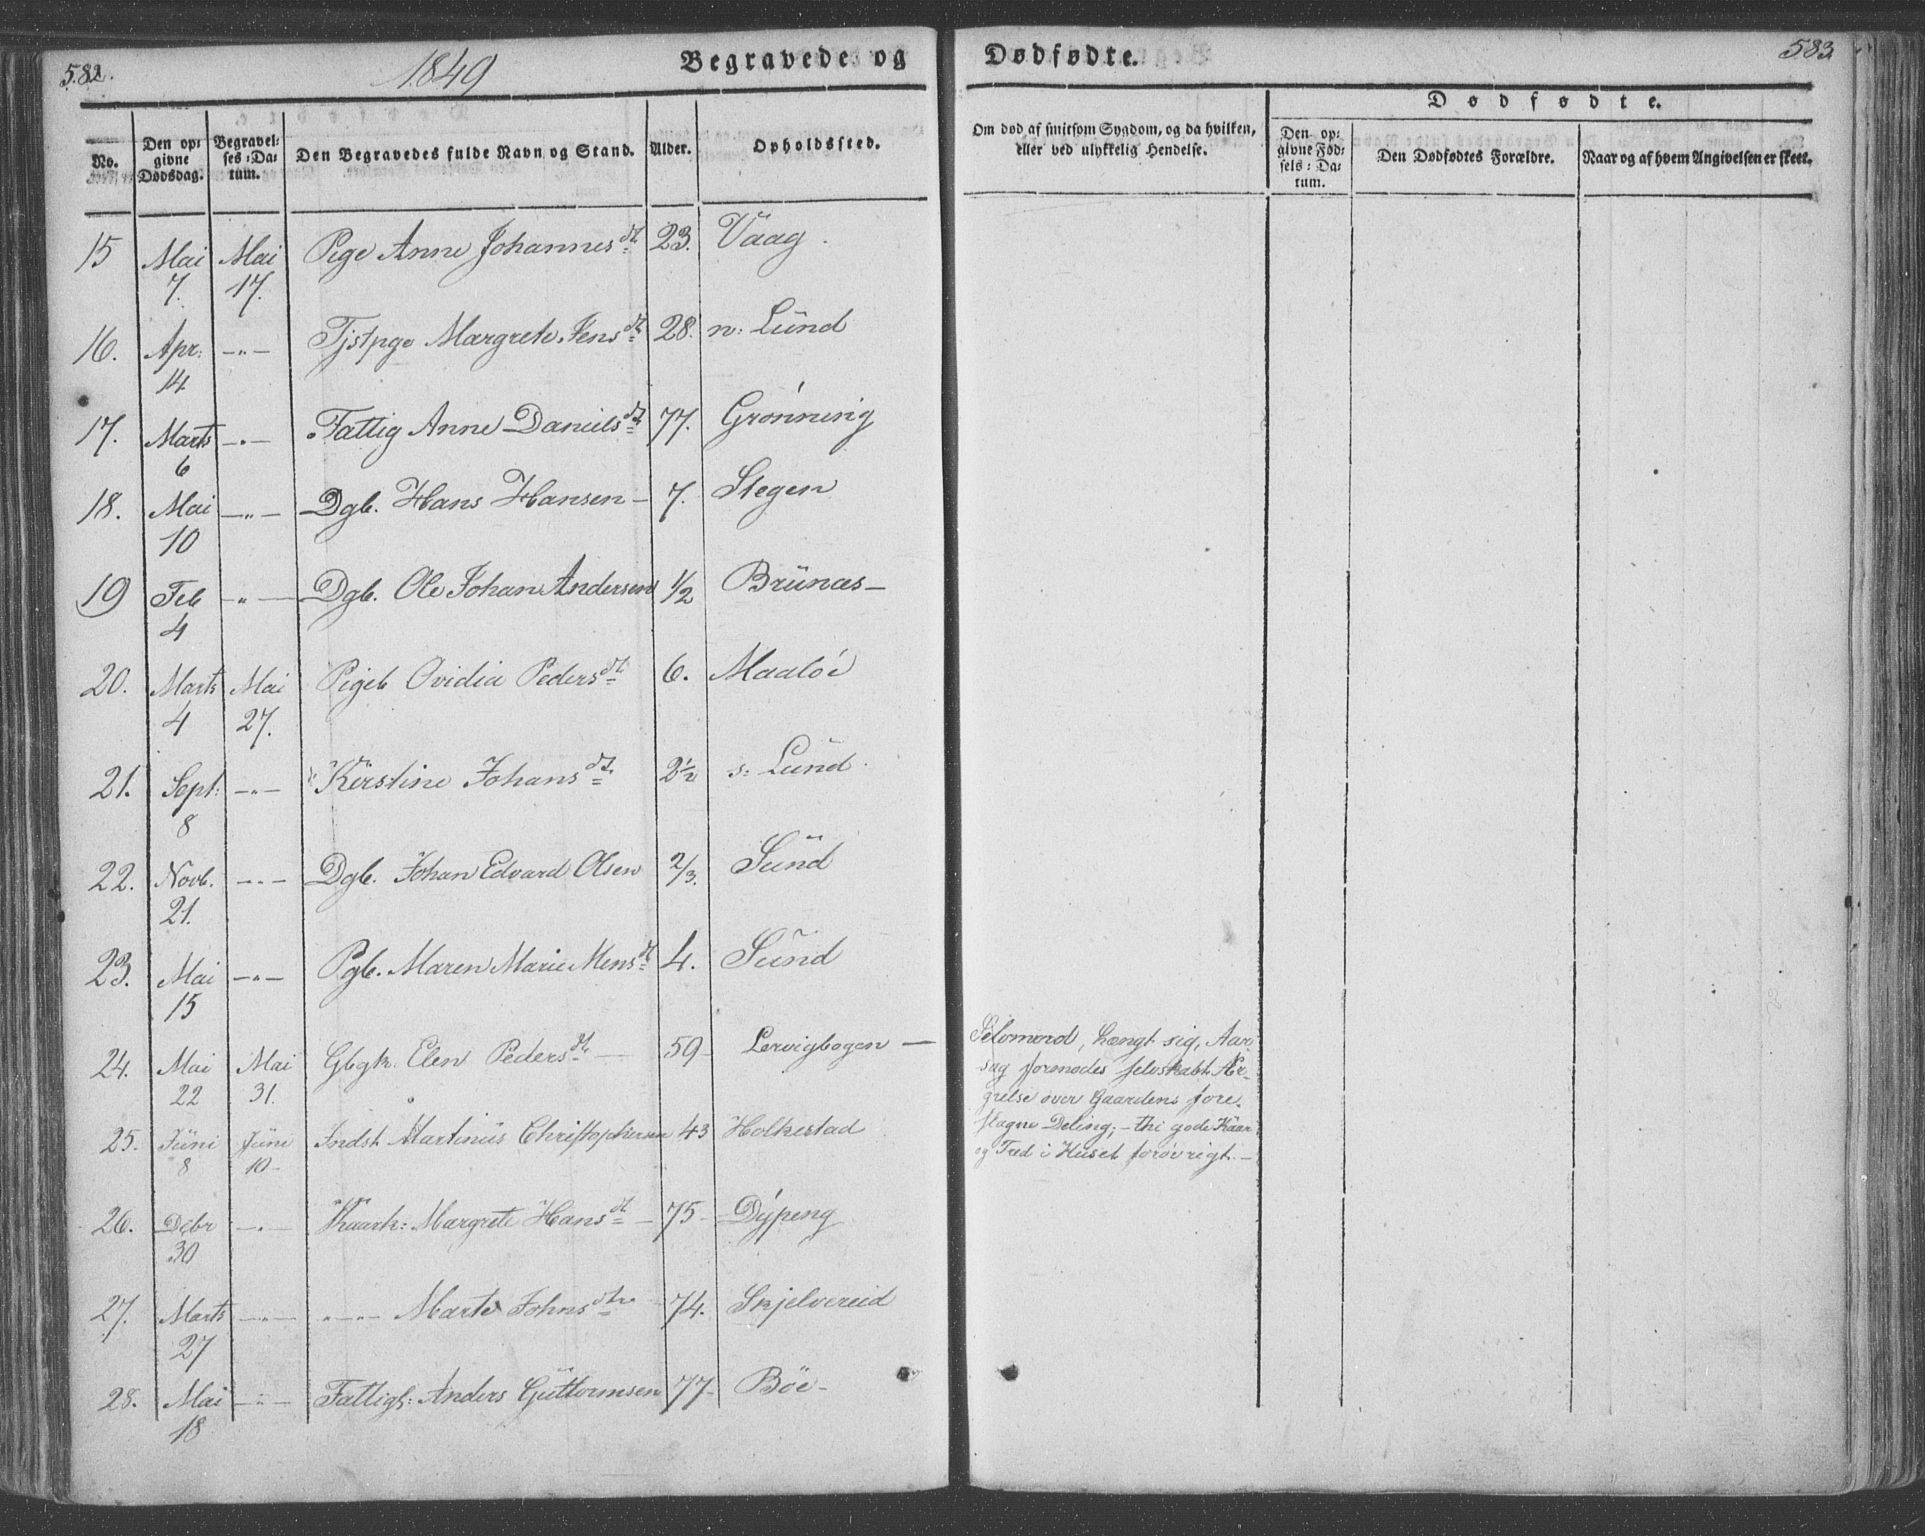 582. 1849 Begravede og Dødfødte. 583
No. Den opgivne Dødsdag. Begravelses-Datum. Den Begravedes fulde Navn og Stand. Alder. Opholdssted.
Om død af smitsom Sygdom, og da hvilken, eller ved ulykkelig Hendelse.
Dødfødte.
Den opgivne Fødsels-Datum. Den Dødfødtes Forældre. Naar og af hvem Angivelsen er skeet.
15 Mai 7. Mai 17. Pige Anne Johannesdt. 23. Vaag.
16. Apr: 14. —„— Tjstpge Margrete Jensdt. 28. n: Lünd
17. Marts 6 —„— Fattig Anne Danielsdt. 77. Grönning
18. Mai 10 —„— Dgb. Hans Hansen — 7. Stegen
19 Feb 4 —„— Dgb. Ole Johan Andersen 1/2 Brünæs —
20. Marts 4 Mai 27. Pigeb Ovidia Pedersdt. 6. Maalöi
21. Sept: 8 —„— Kirstine Johansdt. 2½ s: Lünd.
22. Novb. 21. —„— Dgb. Johan Edvard Olsen 2/3. Sünd
23. Mai 15 —„— Pgb. Maren Marie Mensdt. 4. Sünd
24. Mai 22 Mai 31. Gbgk. Elen Pedersdt. — 59 Lervigbogen —
Selvmord, hængt sig, Aar-
sag formodes selvskabt Ær-
grelse over Gaardens fore-
slagne Deling; – thi gode Kaar
og Fred i Huset forövrigt. —
25. Jüni 8 Jüni 10 Indst Martinüs Christophersen 43 Holkestad
26. Debr 30 —„— Kaark: Margrete Hansdt. — 75 Dÿpeng
27. Marts 27 —„— —„— Marte Johnsdtr 74. Skjelvereid
28. Mai 18 —„— Fattigl: Anders Güttormsen 77 Böe